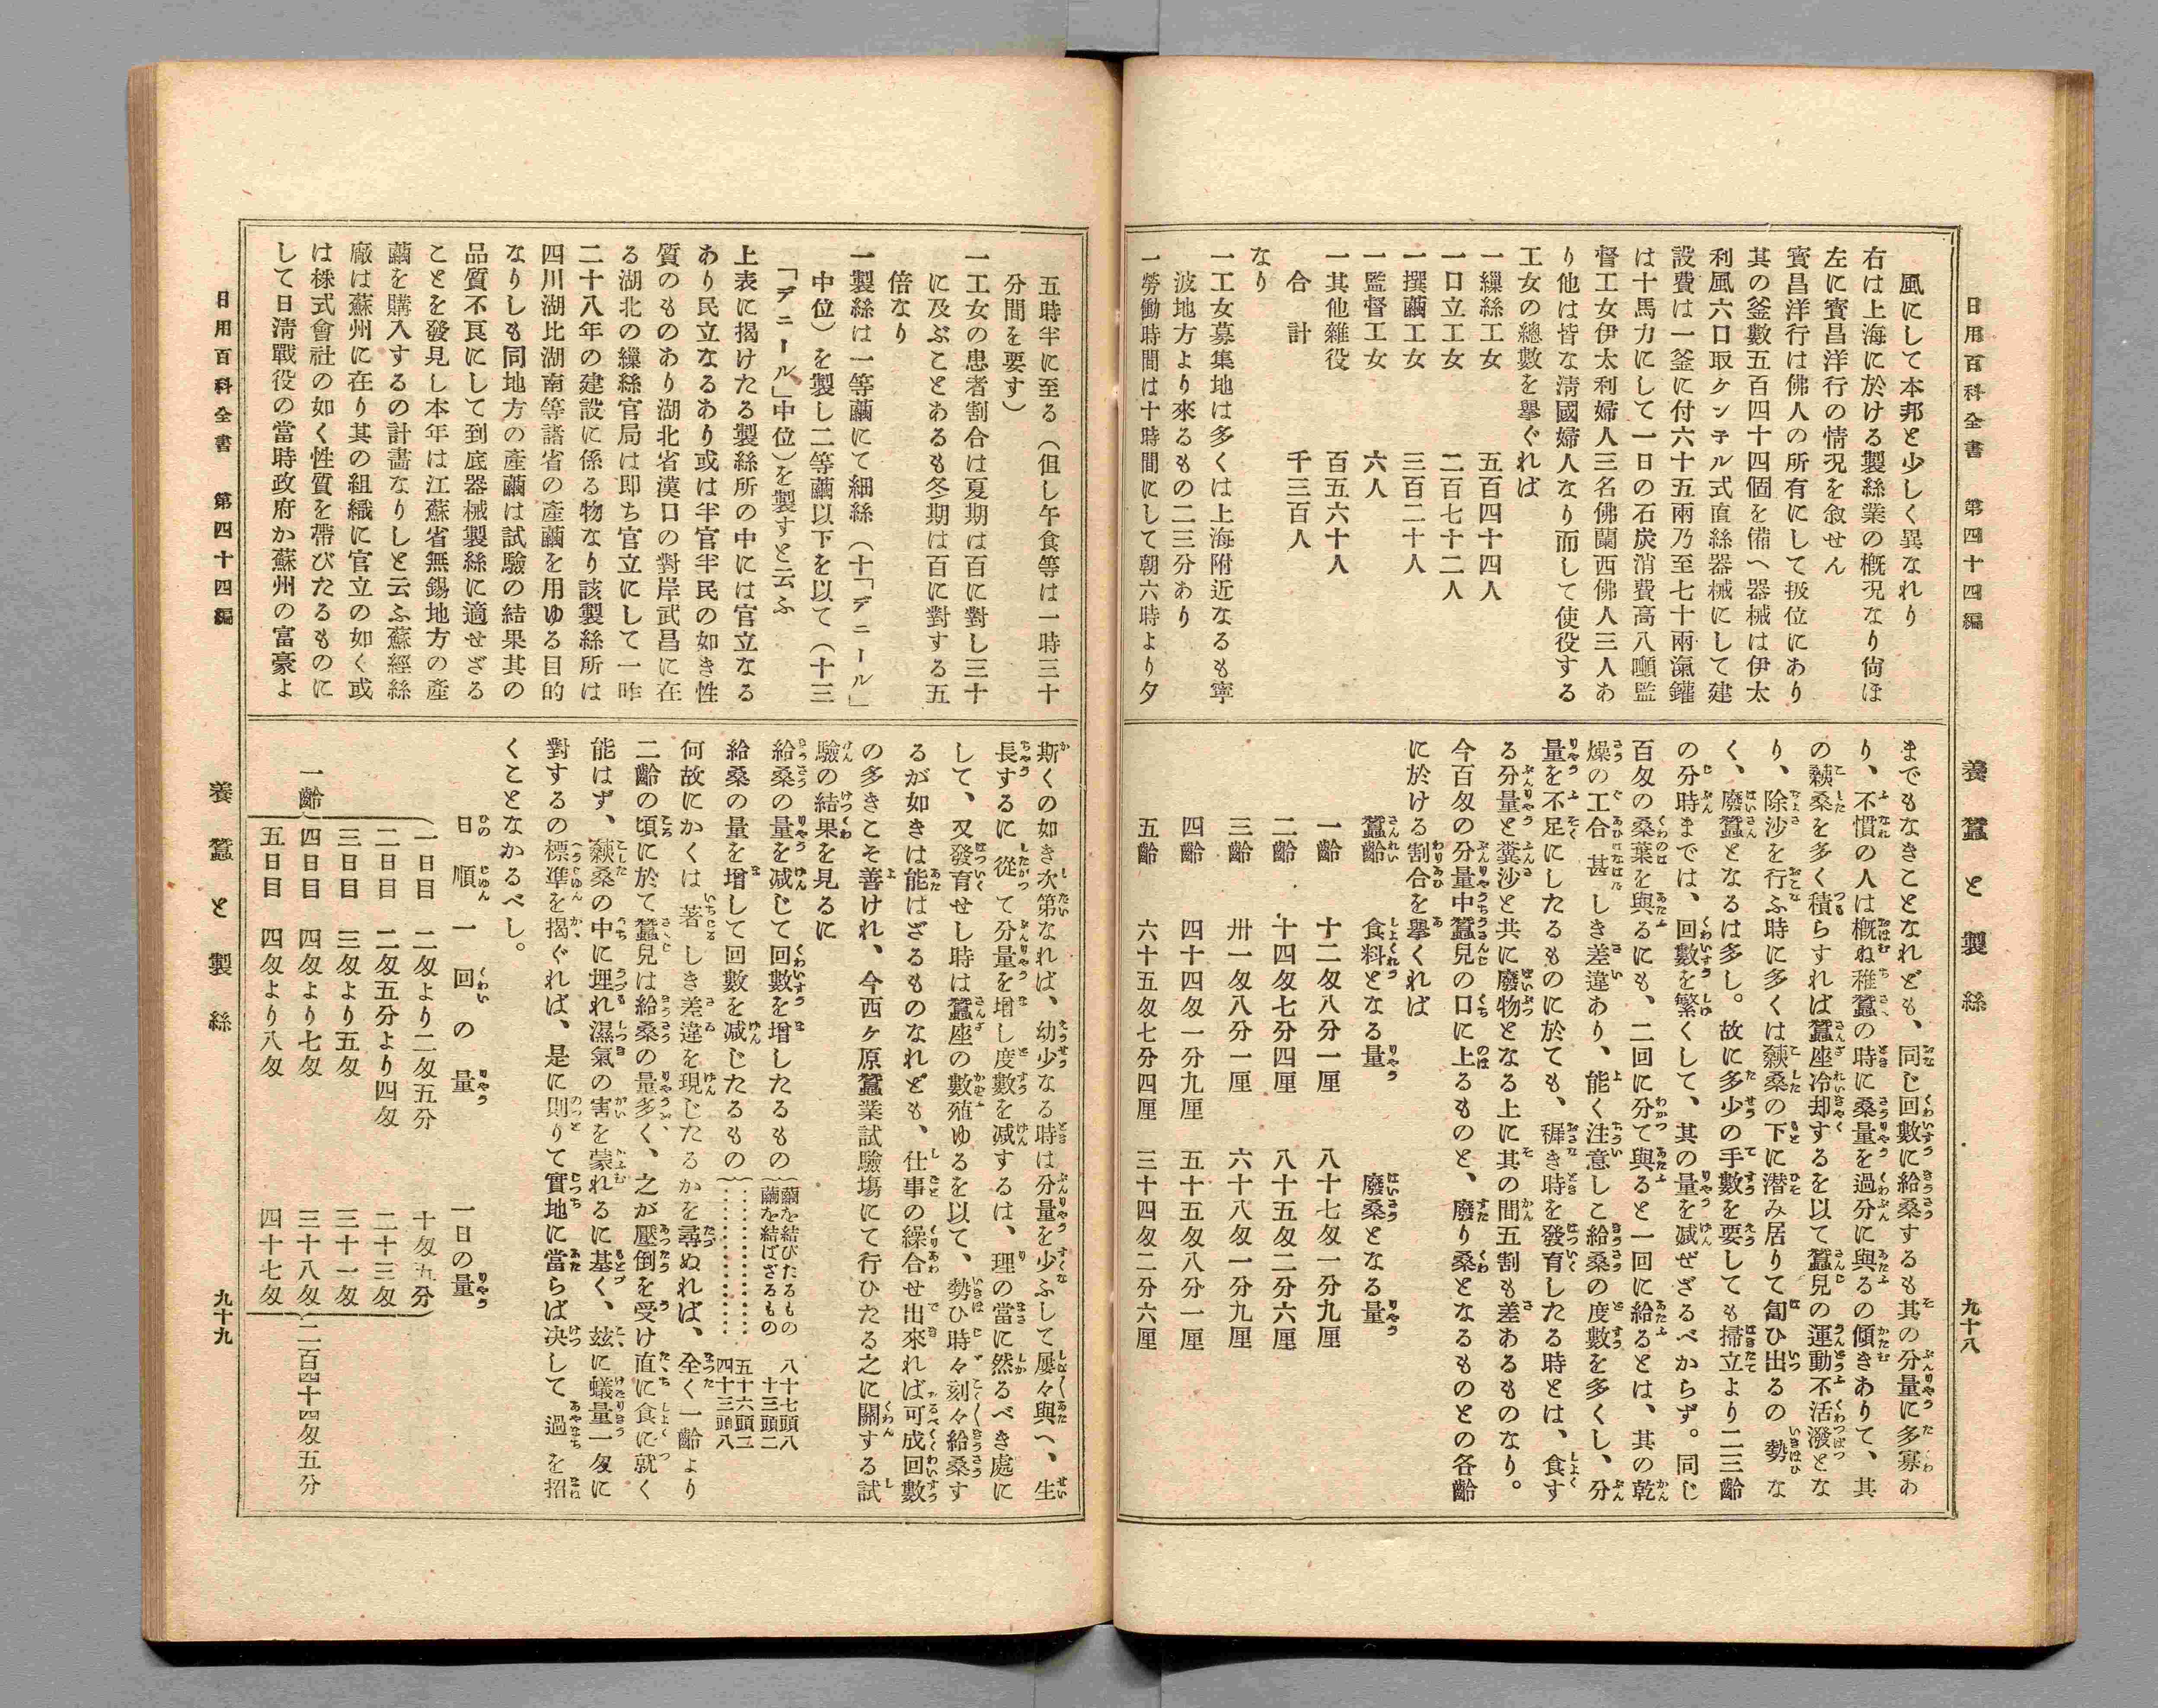 日用百科全書　第四十四編　養蠶と製絲　九十八
風にして本邦と少しく異なれり
右は上海に於ける製絲業の槪況なり尙ほ
左に寳昌洋行の情況を敘せん
寳昌洋行は佛人の所有にして扱位にあり
其の釜數五百四十四個を備へ器械は伊太
利風六口取ケンテル式直絲器械にして建
設費は一釜に付六十五兩乃至七十兩滊鑵
は十馬力にして一日の石炭消費高八噸監
督工女伊太利婦人三名佛蘭西佛人三人あ
り他は皆な淸國婦人なり而して使役する
工女の總數を擧ぐれば
一繅絲工女　五百四十四人
一口立工女　二百七十二人
一撰繭工女　三百二十人
一監督工女　六人
一其他雜役　百五六十人
合計　千三百人
なり
一工女募集地は多くは上海附近なるも寧
波地方より來るもの二三分あり
一勞働時間は十時間にして朝六時より夕
までもなきことなれども、同じ回數に給桑するも其の分量に多寡あ
り、不慣の人は槪ね稚蠶の時に桑量を過分に與るの傾きありて、其
の糓桑を多く積らすれば蠶座冷却するを以て蠶兒の運動不活潑とな
り、除沙を行ふ時に多くは糓桑の下に潜み居りて匐ひ出るの勢な
く、廢蠶となるは多し。故に多少の手數を要しても掃立より二三齡
の分時までは、回數を繁くして、其の量を減ぜざるべからず。同じ
百匁の桑葉を與るにも、二回に分て與ると一回に給るとは、其の乾
燥の工合甚しき差違あり、能く注意しこ給桑の度數を多くし、分
量を不足にしたるものに於ても、穉き時を發育したる時とは、食す
る分量と糞沙と共に廢物となる上に其の間五割も差あるものなり。
今百匁の分量中蠶兒の口に上るものと、廢り桑となるものとの各齡
に於ける割合を擧くれば
蠶齡　食料となる量　廢桑となる量
一齡　十二匁八分一厘　八十七匁一分九厘
二齡　十四匁七分四厘　八十五匁二分六厘
三齡　卅一匁八分一厘　六十八匁一分九厘
四齡　四十四匁一分九厘　五十五匁八分一厘
五齡　六十五匁七分四厘　三十四匁二分六厘
五時半に至る（但し午食等は一時三十
分間を要す）
一工女の患者割合は夏期は百に對し三十
に及ぶことあるも冬期は百に對する五
倍なり
一製絲は一等繭にて細絲（十「デニール」
中位）を製し二等繭以下を以て（十三
「デニール」中位）を製すと云ふ
上表に揭けたる製絲所の中には官立なる
あり民立なるあり或は半官半民の如き性
質のものあり湖北省漢口の對岸武昌に在
る湖北の繅絲官局は卽ち官立にして一昨
二十八年の建設に係る物なり該製絲所は
四川湖比湖南等諸省の產繭を用ゆる目的
なりしも同地方の產繭は試驗の結果其の
品質不良にして到底器械製絲に適せざる
ことを發見し本年は江蘇省無錫地方の產
繭を購入するの計畵なりしと云ふ蘇經絲
廠は蘇州に在り其の組織に官立の如く或
は株式會社の如く性質を帶びたるものに
して日淸戰役の當時政府か蘇州の富豪よ
斯くの如き次第なれば、幼少なる時は分量を少ふして屢々與へ、生
長するに從て分量を增し度數を減するは、理の當に然るべき處に
して、又發育せし時は蠶座の數殖ゆるを以て、勢ひ時々刻々給桑す
るが如きは能はざるものなれども、仕事の繰合せ出來れば可成回數
の多きこそ善けれ、今西ヶ原蠶業試驗塲にて行ひたる之に關する試
驗の結果を見るに
給桑の量を減じて回數を增したるもの｛繭を結びたるもの　八十七頭八
繭を結ばざるもの　十三頭二
給桑の量を增して回數を減じたるもの｛…………　五十六頭二
…………　四十三頭八
何故にかくは著しき差違を現じたるかを尋ぬれば、全く一齡より
二齡の頃に於て蠶兒は給桑の量多く、之が壓倒を受け直に食に就く
能はず、糓桑の中に埋れ濕氣の害を蒙れるに基く、玆に蟻量一匁に
對するの標準を揭ぐれば、是に則りて實地に當らば决して過を招
くことなかるべし。
日順　一回の量　一日の量
一齡
一日目　二匁より二匁五分　十匁五分
二日目　二匁五分より四匁　二十三匁
三日目　三匁より五匁　三十一匁
四日目　四匁より七匁　三十八匁
五日目　四匁より八匁　四十七匁
二百四十四匁五分
日用百科全書　第四十四編　養蠶と製絲　九十九